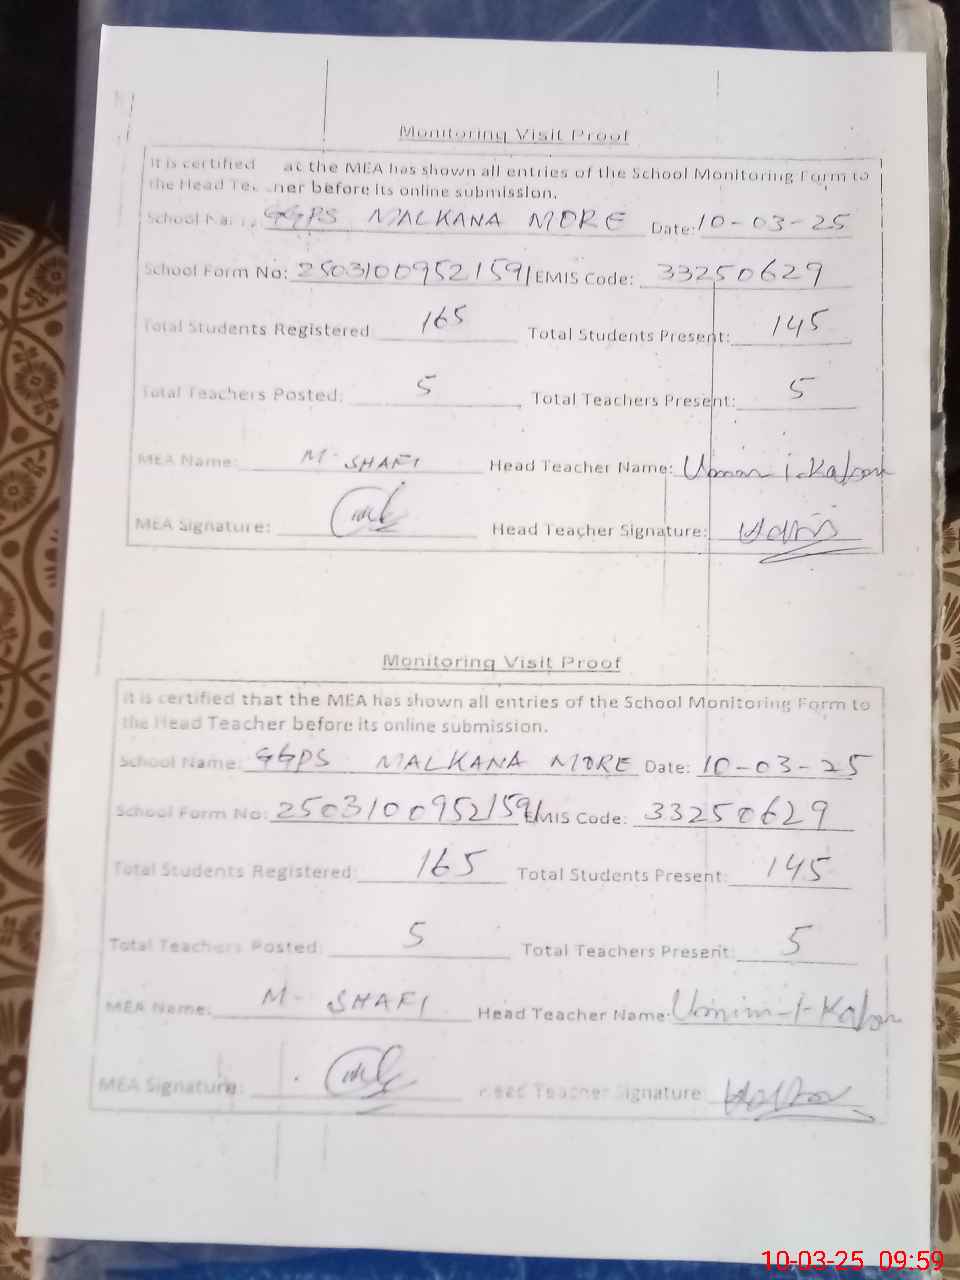 Monitoring Visit Proof
It is certified at the MEA has shown all entries of the School Monitoring Form to
the Head Te ner before its online submission.
School Na GGPS MALKANA MORE Date: 10-03-25
School Form No: 2503100952159 EMIS Code: 33250629
Total Students Registered 165 Total Students Present: 145
Total Teachers Posted: 5 Total Teachers Present: 5
MEA Name: M. SHAFI Head Teacher Name:
MEA Signature: Head Teacher Signature:
Monitoring Visit Proof
It is certified that the MEA has shown all entries of the School Monitoring Form to
the Head Teacher before its online submission.
School Name: GGPS MALKANA MORE Date: 10-03-25
School Form No: 2503100952159 EMIS Code: 33250629
Total Students Registered: 165 Total Students Present: 145
Total Teachers Posted: 5 Total Teachers Present: 5
MEA Name: M- SHAFI Head Teacher Name:
MEA Signature: Head Teacher Signature:
10-03-25 09:59